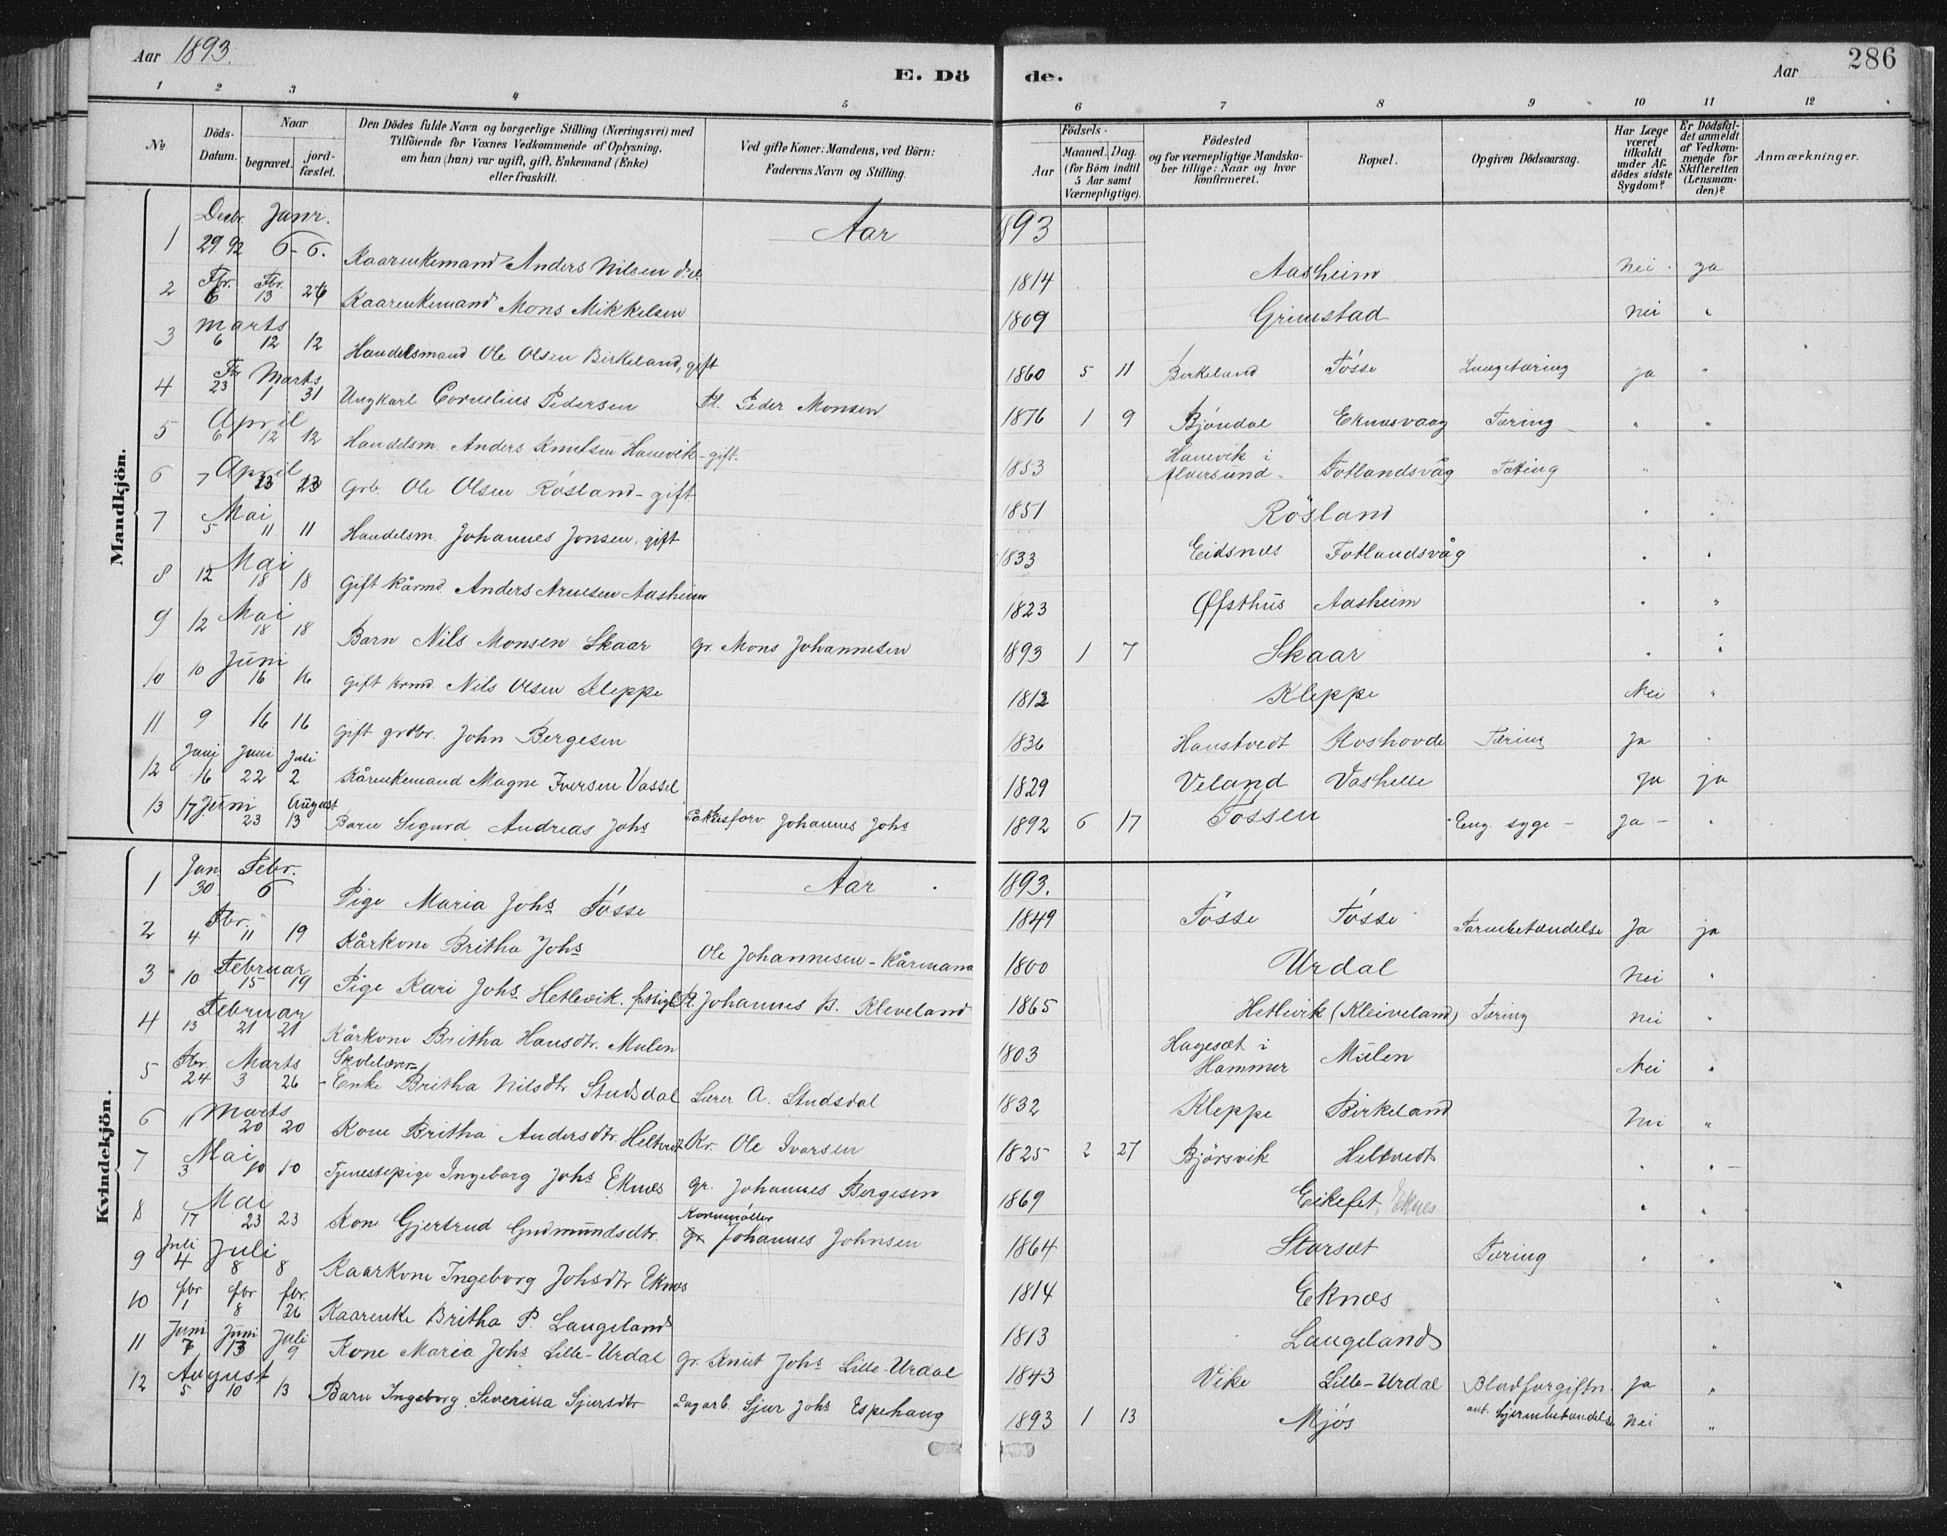 Aar 1893.
E. Dö
de.
Aar
286
1 2 3 4 5 6 7 8 9 10 11 12
No
Döds-Datum.
Naar
begravet.
jord-fæstet.
Den Dödes fulde Navn og borgerlige Stilling (Næringsvei) med
Tilföiende for Voxnes Vedkommende af Oplysning,
om han (hun) var ugift, gift, Enkemand (Enke)
eller fraskilt.
Ved gifte Koner: Mandens, ved Börn:
Faderens Navn og Stilling.
Födsels-
Aar
Maaned. Dag.
(for Börn indtil
5 Aar samt
Værnepligtige).
Födested
og for værnepligtige Mandska-
ber tillige: Naar og hvor
konfirmeret.
Bopæl.
Opgiven Dödsaarsag.
Har Læge
været
tilkaldt
under Af-
dödes sidste
Sygdom?
Er Dödsfal-
det anmeldt
af Vedkom-
mende for
Skifteretten
(Lensman-
den)?
Anmærkninger.
Mandkjön.
Aar 1893
1 Decbr. 29 92 Janr. 6 - 6. Kaarenkemand Anders Nilsen 1814 Aasheim Nei ja
2 Fbr. 6 Fbr. 13 26 Kaarenkemand Mons Mikkelsen 1809 Grimstad Nei "
3 Marts 6 12 12 Handelsmand Ole Olsen Birkeland, gift 1860 5 11 Birkeland Fósse Lungetæring ja "
4 Fbr 23 Marts 1 31 Ungkarl Cornelius Pedersen Pl. Peder Monsen 1876 1 9 Bjöndal Eknesvaag Tæring " "
5 April 6 12 12 Handelsm. Anders Knutsen Hanevik - gift. 1853 Hanevik i Alversund - Fotlandsvåg Tæring "
6 April 7 13 23 Grb. Ole Olsen Rösland - gift 1851 Rösland " "
7 Mai 5 11 11 Handelsm. Johannes Jonsen, gift 1833 Eidsnes Fotlandsvåg " "
8 Mai 12 18 18 Gift kårmd. Anders Arnesen Aasheim 1823 Øfsthus Aasheim " "
9 Mai 12 18 18 Barn Nils Monsen Skaar gr. Mons Johannesen 1893 1 7 Skaar " "
10 Juni 10 16 16 gift krmd. Nils Olsen Kleppe 1812 Kleppe Nei "
11 9 16 16 gift grdbr. John Bergesen 1836 Hanstvedt Roshovde Tæring ja "
12 Juni 16 Juni 22 Juli 2 Kårenkemand Magne Iversen Vassel 1829 Veland Vashelle ja ja
13 Juni 17 23 August 13 Barn Sigurd Andreas Johs Pakhusforv Johannes Johs 1892 6 17 Fossen Eng. syge - Ja - "
Kvindekjön.
Aar 1893.
1 Jan 30 Febr. 6 Pige Maria Johs Fósse 1849 Fösse Fósse Tarmbetændelse Ja ja
2 Fbr. 4 11 19 Kårkone Britha Johs Ole Johannesen - Kårmand 1800 Urdal Nei "
3 Februar 10 15 19 Pige Kari Johs Hetlevik. Johannes B. Kleveland 1865 Hetlevik (Kleiveland) Tæring Nei "
4 Februar 13 21 21 Kårkone Britha Hansdtr. Mulen 1803 Hagesæt i Hammer Mulen Nei "
5 Fbr. 24 Marts 3 26 Skolelærer- Enke Britha Nilsdtr Studsdal Lærer A. Studsdal 1832 Kleppe Birkeland Nei "
6 Marts 11 20 20 Kone Britha Andersdtr. Heltvedt Kr. Ole Iversen 1825 2 27 Björsvik Heltvedt " " -
7 Mai 3 10 10 Tjenestepige Ingeborg Johs Eknes gr. Johannes Bergesen 1869 Eikefet, Eknes " "
8 Mai 17 23 23 Kone Gjertrud Gudmundsdtr. Kornmøller gr Johannes Johnsen 1864 Storset Tæring " "
9 Juli 4 Juli 8 8 Kaarkone Ingeborg Johsdtr Eknes 1814 Eknæs "
10 fbr 1 fbr 8 fbr. 26 Kaarenke Britha P. Langeland 1813 Langeland "
11 Juni 7 Juni 13 Juli 9 Kone Maria Johs Lille-Urdal gr. Knut Johs Lille-Urdal 1843 Vike Lille-Urdal Blodforgiftn. ja "
12 August 5 10 13 Barn Ingeborg Severina Sjursdtr Dagarb. Sjur Johs Espehaug 1893 1 13 Mjós ant. hjernebetændelse Nei "